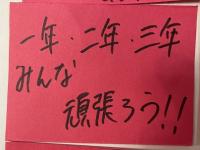 一年・二年・三年
みんな
頑張ろう!!